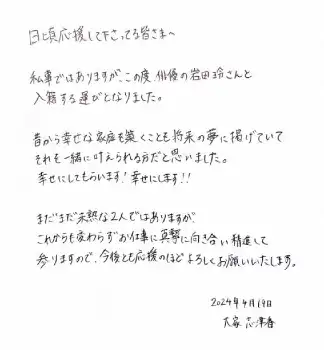 日頃応援して下さってる皆さまへ
私事ではありますが、この度、俳優の岩田玲さんと
入籍する運びとなりました。
昔から幸せな家庭を築くことも将来の夢に掲げていて
それも一緒に叶えられる方だと思いました。
幸せにしてもらいます！幸せにします！！
まだまだ未熟な2人ではありますが、
これからも変わらずお仕事に真摯に向き合い精進して
参りますので、今後とも応援のほどよろしくお願いいたします。
2024年4月19日
大家志津香